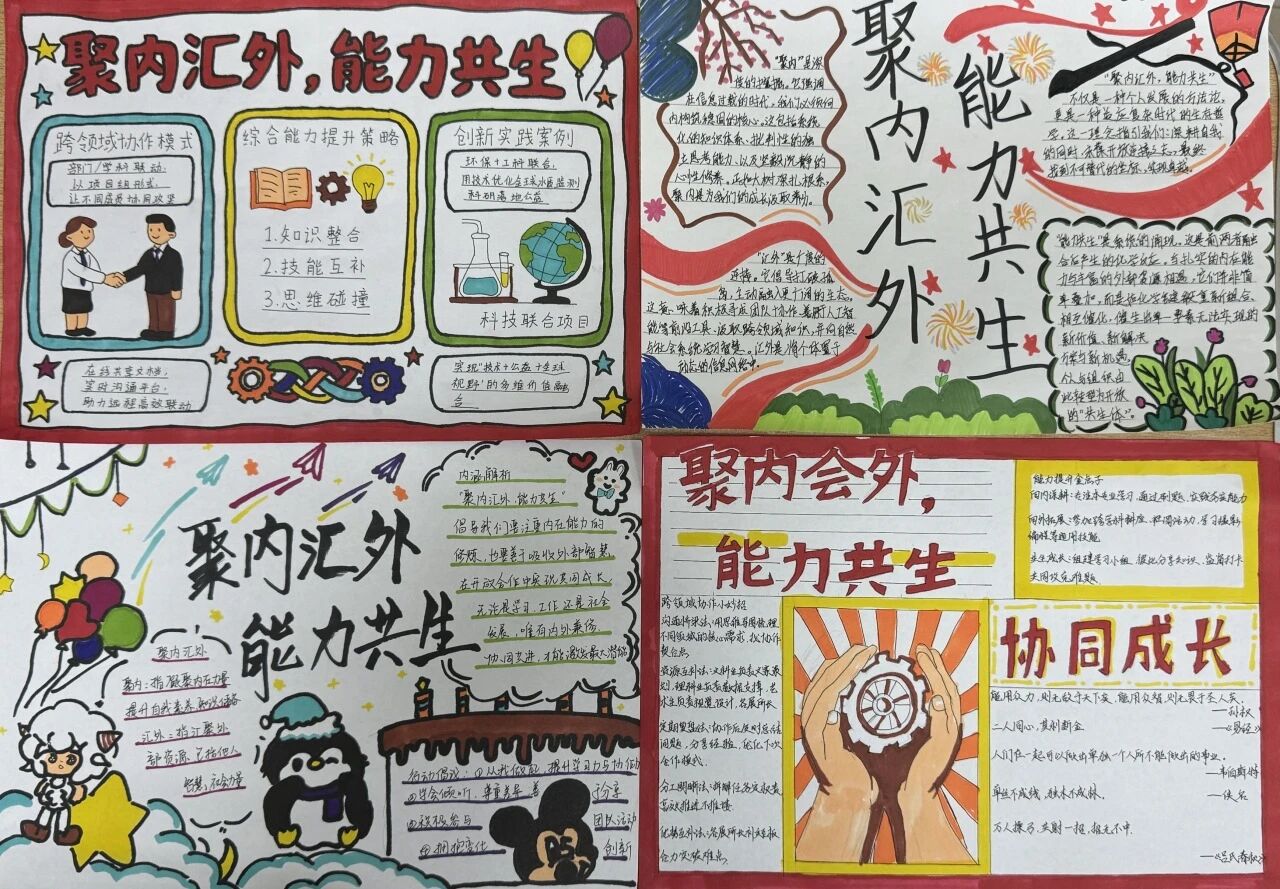 聚内汇外，能力共生
跨领域协作模式
部门/学科联动：
以项目组形式，
让不同角色协同攻坚
在线共享文档，
实时沟通平台，
助力远程高效联动
综合能力提升策略
1.知识整合
2.技能互补
3.思维碰撞
创新实践案例
环保+工种联合，
用技术优化全球水质监测
科研落地公益
科技联合项目
实现“技术+公益+全球
视野”的多维价值融
合
聚内汇外
能力共生
“聚内”是深
度的挖掘。它强调
在信息过载的时代，我们必须向
内构筑稳固的核心。这包括系统
化的知识体系、批判性的独
立思考能力、以及坚韧沉静的
心性修养。正如大树深扎根系，
聚内是为我们的成长汲取养分。
“汇外”是广度的
连接。它倡导打破孤
岛，主动融入更广阔的生态。
能等前沿工具、汲取跨领域知识，并向自然
与社会系统学习智慧。汇外是将个体置于
动态的信息网络中。
“聚内汇外，能力共生”
不仅是一种个人发展的方法论，
更是一种适应复杂时代的生存哲
学。这一理念指引我们：深耕自我
的同时，永葆开放连接之心，最终
找到不可替代的坐标，实现卓越。
“能力共生”是系统的涌现。这是前两者融
合后产生的化学反应。当扎实的内在能
力与丰富的外部资源相遇，它们并非简
单叠加，而是像化学元素般重新组合、
相互催化，催生出单一要素无法实现的
新价值、新解决
方案与新机遇。
个人与组织由
此转型为开放
的“共生体”。
聚内汇外
能力共生
内涵解析
“聚内汇外，能力共生”
倡导我们要注重内在能力的
修炼，也要善于吸收外部智慧，
在开放合作中实现共同成长。
无论是学习、工作还是社会
发展，唯有内外兼修、
协同共进，才能激发最大潜能
聚内汇外
聚内：指凝聚内在力量
提升自我素养、知识储备
汇外：指汇聚外
部资源，包括他人
智慧，社会力量
行动倡议：①从我做起，提升学习力与协作力
②学会倾听，尊重差异，善 于分享
③积极参与 团队活动
④拥抱变化 创新
聚内会外，
能力共生
能力提升金点子
向内深耕：专注本专业学习，通过刷题、实践夯实能力
向外拓展：参加跨学科讲座、职场活动，学习摄影、
编程等通用技能
共生成长：组建学习小组，彼此分享知识、监督打卡
共同攻克难题
跨领域协作小妙招
沟通桥梁法：用思维导图梳理
不同领域的核心需求，找协作
契合点。
资源互补法：文科生负责文案策
划，理科生负责数据支撑，艺
术生负责视觉设计，各展所长
定期复盘法：协作后及时总结
问题，分享经验，优化下次
合作模式。
分工明晰法：拆解任务定权责
高效推进不推诿
优势互补法：各展所长补短板
合力突破难点。
协同成长
能用众力，则无敌于天下矣；能用众智，则无畏于圣人矣。
——孙权
二人同心，其利断金
——《易经》
人们在一起可以做出单独一个人所不能做出的事业。
——韦伯斯特
单丝不成线，独木不成林。
——佚名
万人操弓，共射一招，招无不中。
——《吕氏春秋》